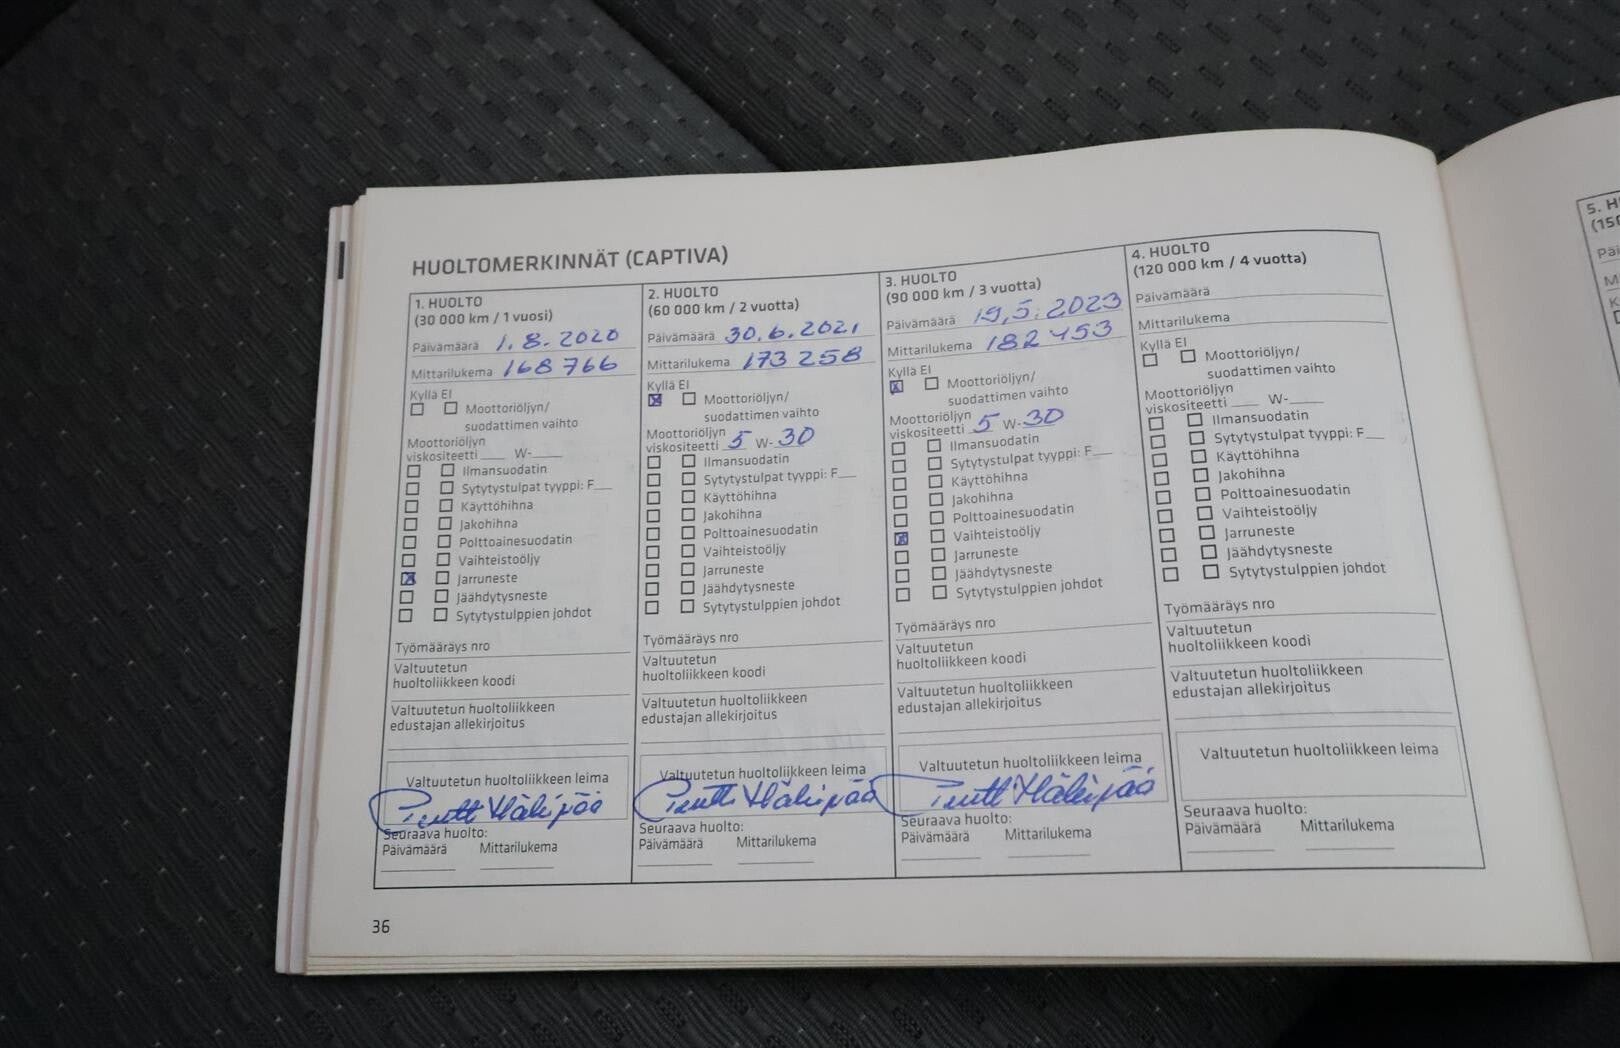 HUOLTOMERKINNÄT (CAPTIVA)
1. HUOLTO
(30 000 km / 1 vuosi)
Päivämäärä 1.8.2020
Mittarilukema 168 766
Kyllä EI
Moottoriöljyn/
suodattimen vaihto
Moottoriöljyn
viskositeetti ___ W-___
Ilmansuodatin
Sytytystulpat tyyppi: F__
Käyttöhihna
Jakohihna
Polttoainesuodatin
Vaihteistoöljy
Jarruneste
Jäähdytysneste
Sytytystulppien johdot
Työmääräys nro
Valtuutetun
huoltoliikkeen koodi
Valtuutetun huoltoliikkeen
edustajan allekirjoitus
Valtuutetun huoltoliikkeen leima
Pentti
Seuraava huolto:
Päivämäärä Mittarilukema
2. HUOLTO
(60 000 km / 2 vuotta)
Päivämäärä 30.6.2021
Mittarilukema 173 258
Kyllä EI
Moottoriöljyn/
suodattimen vaihto
Moottoriöljyn
viskositeetti 5 W-30
Ilmansuodatin
Sytytystulpat tyyppi: F__
Käyttöhihna
Jakohihna
Polttoainesuodatin
Vaihteistoöljy
Jarruneste
Jäähdytysneste
Sytytystulppien johdot
Työmääräys nro
Valtuutetun
huoltoliikkeen koodi
Valtuutetun huoltoliikkeen
edustajan allekirjoitus
Valtuutetun huoltoliikkeen leima
Pentti
Seuraava huolto:
Päivämäärä Mittarilukema
3. HUOLTO
(90 000 km / 3 vuotta)
Päivämäärä 19.5.2023
Mittarilukema 182 453
Kyllä EI
Moottoriöljyn/
suodattimen vaihto
Moottoriöljyn
viskositeetti 5 W-30
Ilmansuodatin
Sytytystulpat tyyppi: F__
Käyttöhihna
Jakohihna
Polttoainesuodatin
Vaihteistoöljy
Jarruneste
Jäähdytysneste
Sytytystulppien johdot
Työmääräys nro
Valtuutetun
huoltoliikkeen koodi
Valtuutetun huoltoliikkeen
edustajan allekirjoitus
Valtuutetun huoltoliikkeen leima
Pentti
Seuraava huolto:
Päivämäärä Mittarilukema
4. HUOLTO
(120 000 km / 4 vuotta)
Päivämäärä
Mittarilukema
Kyllä EI
Moottoriöljyn/
suodattimen vaihto
Moottoriöljyn
viskositeetti ___ W-___
Ilmansuodatin
Sytytystulpat tyyppi: F__
Käyttöhihna
Jakohihna
Polttoainesuodatin
Vaihteistoöljy
Jarruneste
Jäähdytysneste
Sytytystulppien johdot
Työmääräys nro
Valtuutetun
huoltoliikkeen koodi
Valtuutetun huoltoliikkeen
edustajan allekirjoitus
Valtuutetun huoltoliikkeen leima
Seuraava huolto:
Päivämäärä Mittarilukema
36